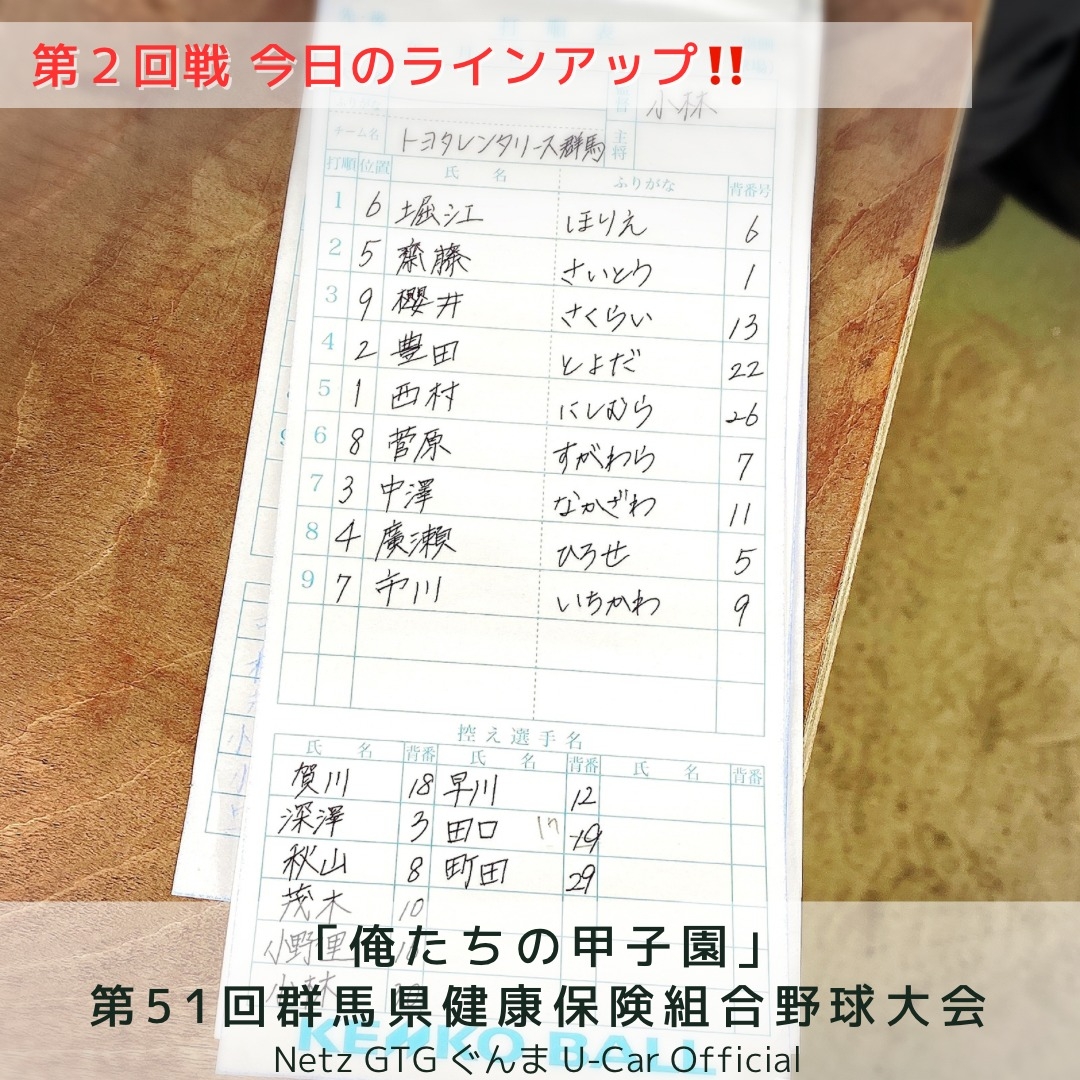 第2回戦 今日のラインアップ‼️
小林
チーム名 トヨタレンタリース群馬 主将
打順 位置 氏名 ふりがな 背番号
1 6 堀江 ほりえ 6
2 5 齋藤 さいとう 1
3 9 櫻井 さくらい 13
4 2 豊田 とよだ 22
5 1 西村 にしむら 26
6 8 菅原 すがわら 7
7 3 中澤 なかざわ 11
8 4 廣瀬 ひろせ 5
9 7 市川 いちかわ 9
控え選手名
氏名 背番 氏名 背番 氏名 背番
賀川 18 早川 12
深澤 3 田口 17 19
秋山 8 町田 29
茂木 10
小野里
小林
「俺たちの甲子園」
第51回群馬県健康保険組合野球大会
KENKO BALL
Netz GTG ぐんま U-Car Official